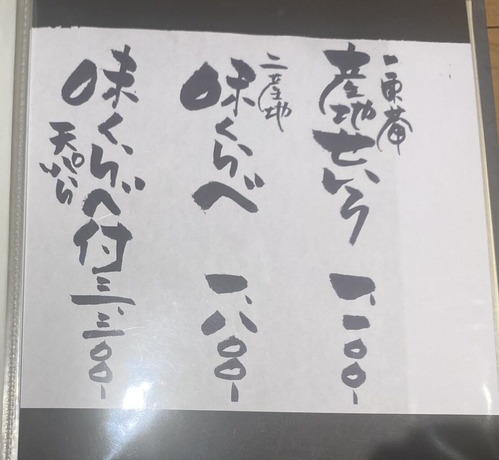 産地せいろ 一、一〇〇-
二産地
味くらべ 一、八〇〇-
味くらべ
天ぷら
付 三、三〇〇-